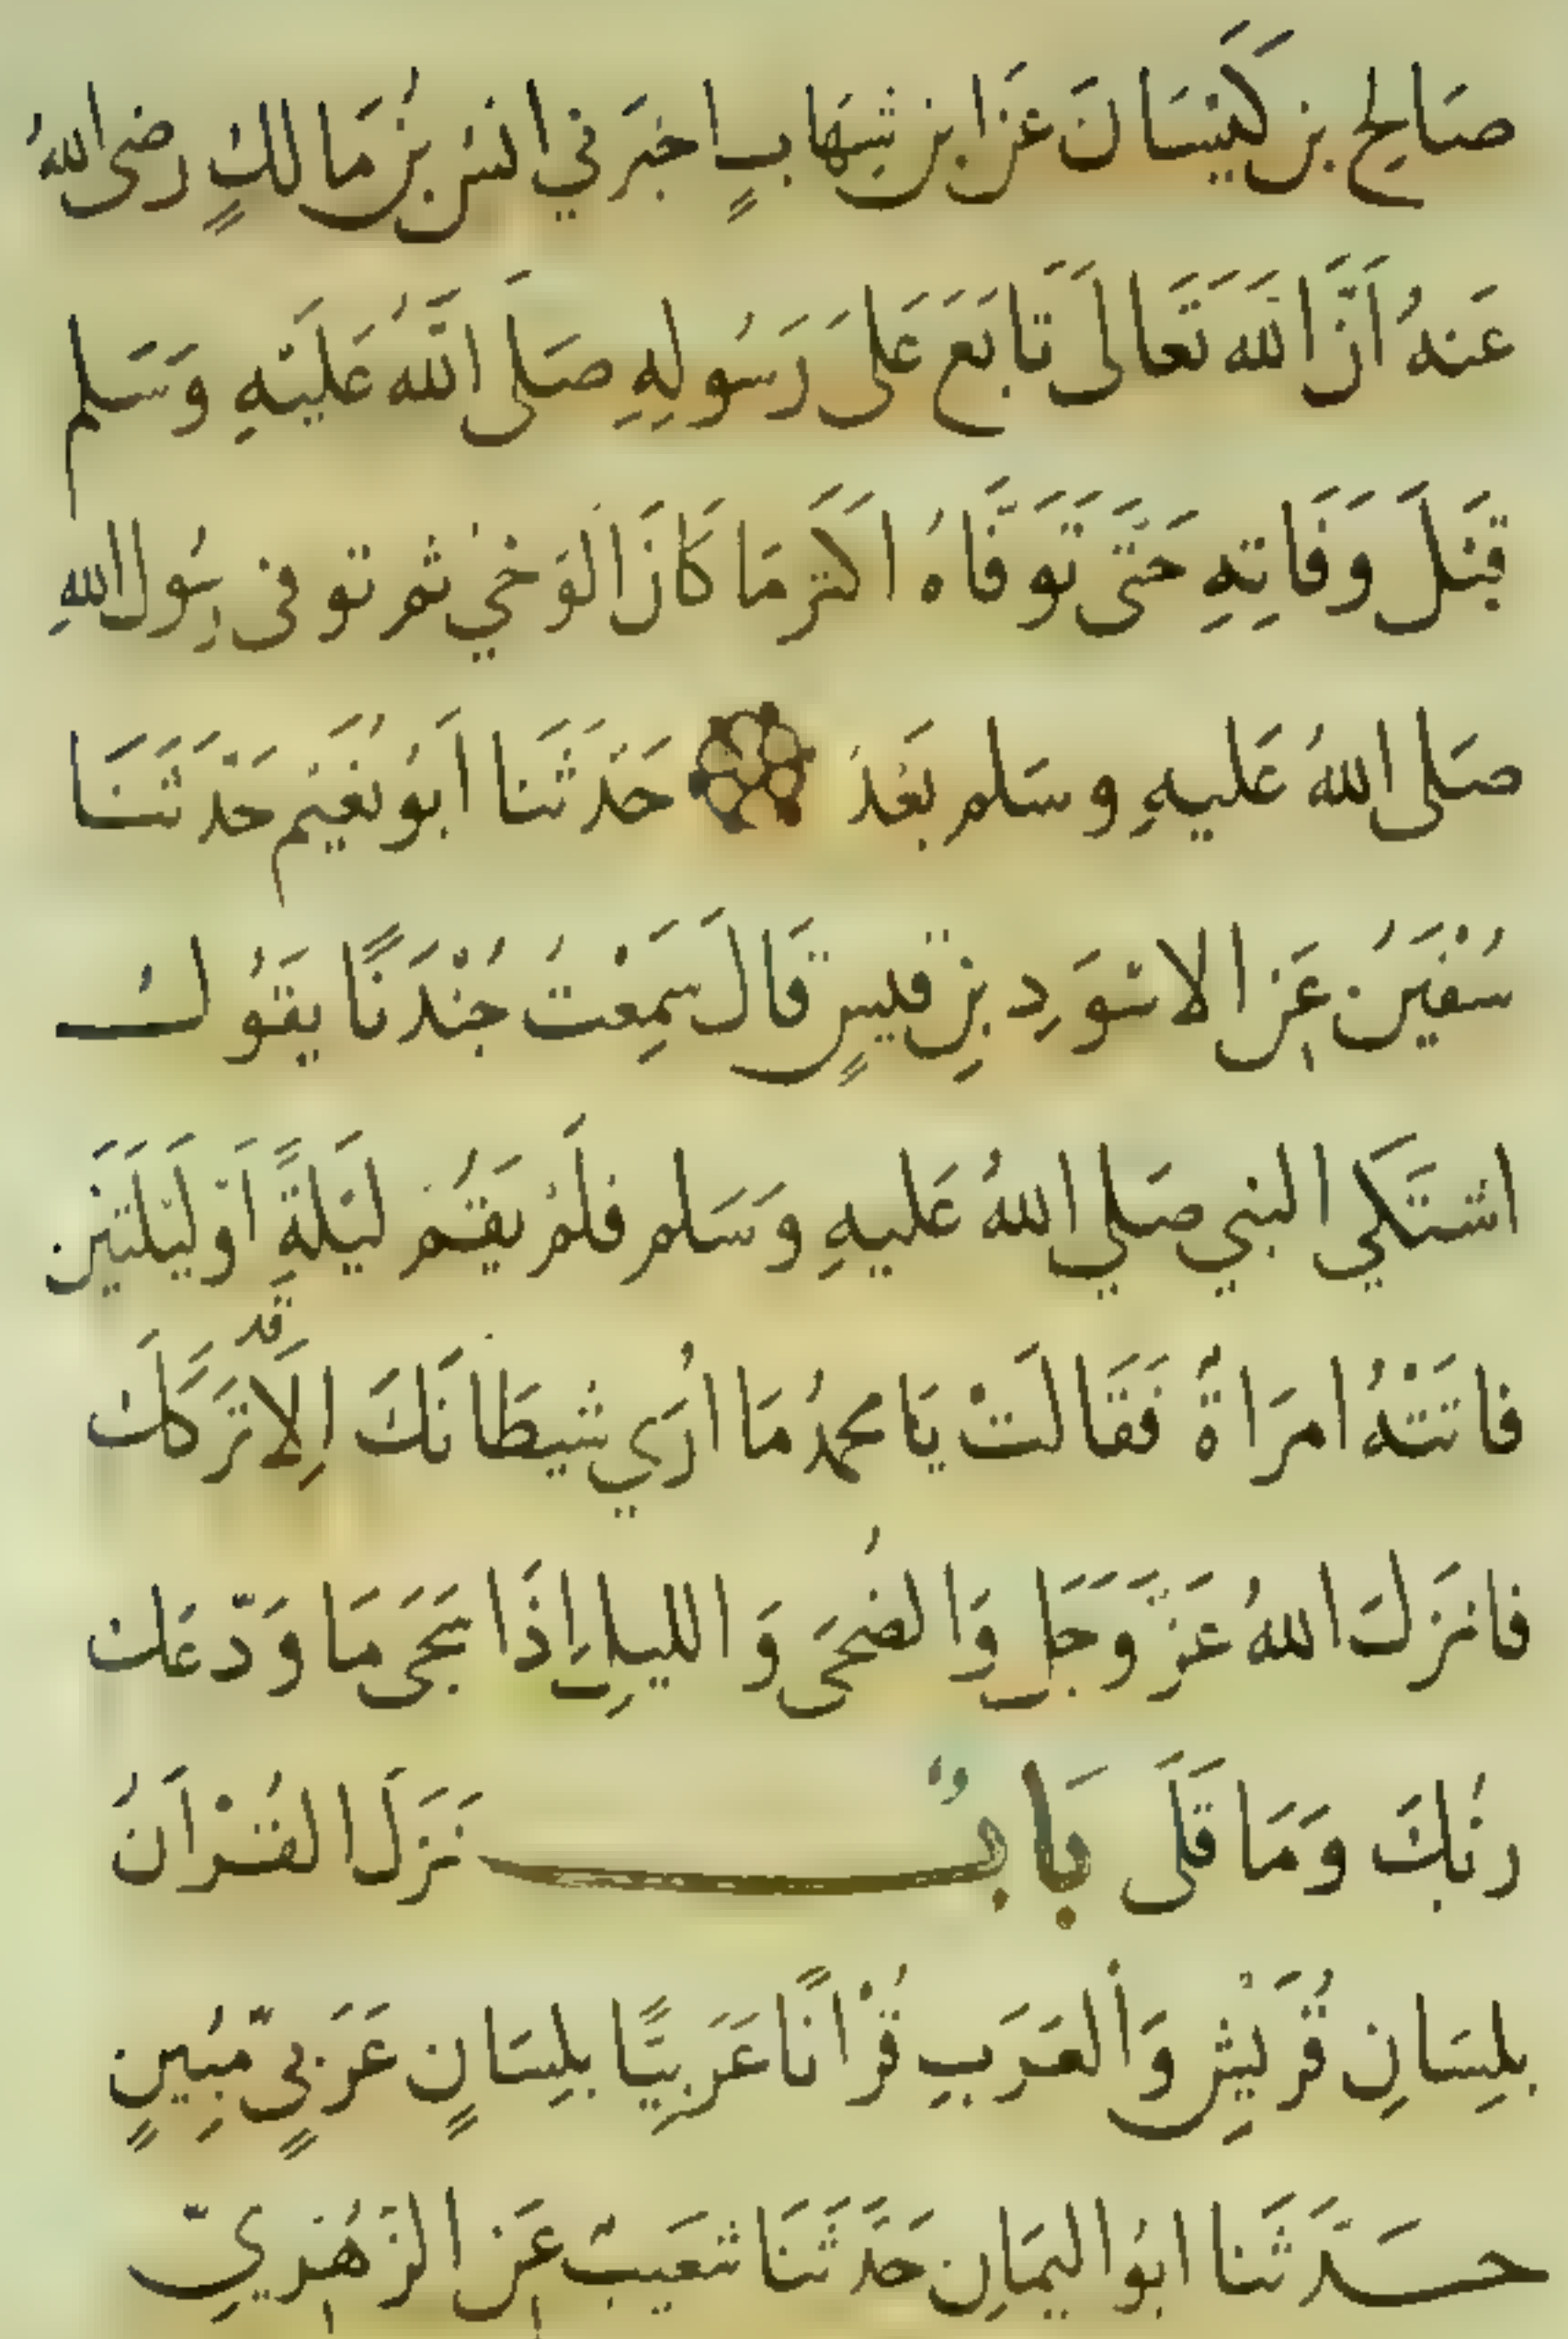 صَالِحِ بن كَيْسَانَ عَن ابن شِهَابٍ اخبَرَني انسُ بنُ مَالكٍ رضى اللهُ
عَنهُ اَنَّ اللهَ تَعَالَى تَابَعَ عَلَى رَسُولِهِ صَلَى اللَّهُ عَلَيْهِ وَسَلم
قَبْلَ وَفَاتِهِ حَتَّى تَوَفَّاهُ اكَثَرَ مَا كَانَ الوَحْيُ ثم توفى رسُول اللهِ
صَلى اللهُ عَليهِ وسَلم بَعْدُ حَدَثَنا اَبُو نُعَيْم حَدْثَنَا
سُفْيَنُ عَنِ الاسْوَدِ بنِ قيسٍ قَالَ سَمِعْتُ جُنْدَبًا يَقُولُ
اشتَكَي النبي صَلي اللهُ عَليهِ وَسَلم فلَمْ يَقُمْ لَيْلَةً اَوْ لَيْلَتَيْن
فاتَتْهُ امرَاةٌ فَقَالَتْ يَا محمدُ مَا ارَُي شيطَانَكَ اِلَا قَد تَرَكَكَ
فانزَلَ اللهُ عَزَّ وَجَلَ وَالضُحَى وَالليلِ اِذَا سَجَى مَا وَدّعَك
رَبُكَ وَمَا قَلَى بَابٌ نَزَلَ القُرْاَنُ
بلِسَانِ قُرَيْشٍ وَالعَرَبِ قُرْاَنًا عَرَبِيًّا بلِسَانٍ عَرَبيٍّ مُبِينٍ
حَدَّثَنا ابُو اليَمَانِ حَدَّثَنَا شعَيبٌ عَنِ الزُهْرِيِّ